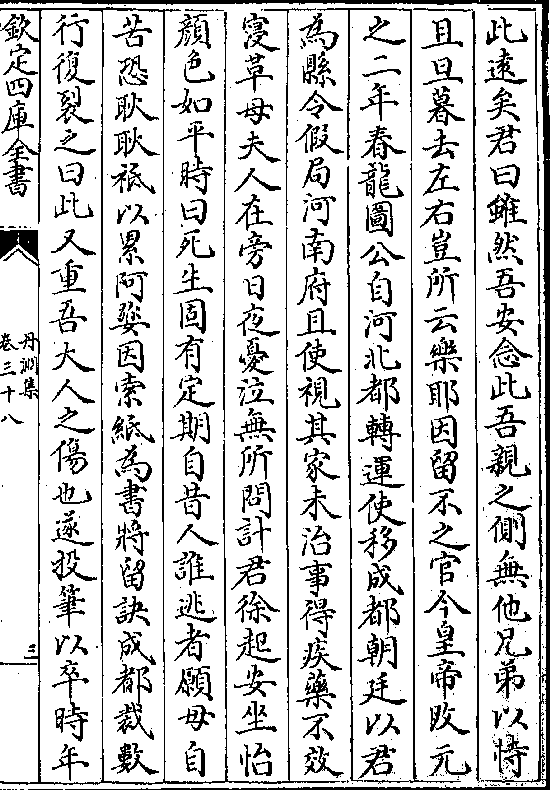 此逺矣君曰雖然吾安念此吾親之側無他兄弟以恃
且旦暮去左右豈所云樂耶因留不之官今皇帝改元
之二年春龍圖公自河北都轉運使移成都朝廷以君
為縣令假局河南府且使視其家未治事得疾藥不效
寖草母夫人在旁日夜憂泣無所問計君徐起安坐怡
顔色如平時曰死生固有定期自昔人誰逃者願母自
苦恐耿耿祗以累阿㜷因索紙為書將留訣成都裁數
行復裂之曰此又重吾大人之傷也遂投筆以卒時年
欽定四庫全書
丹淵集
卷三十八
三